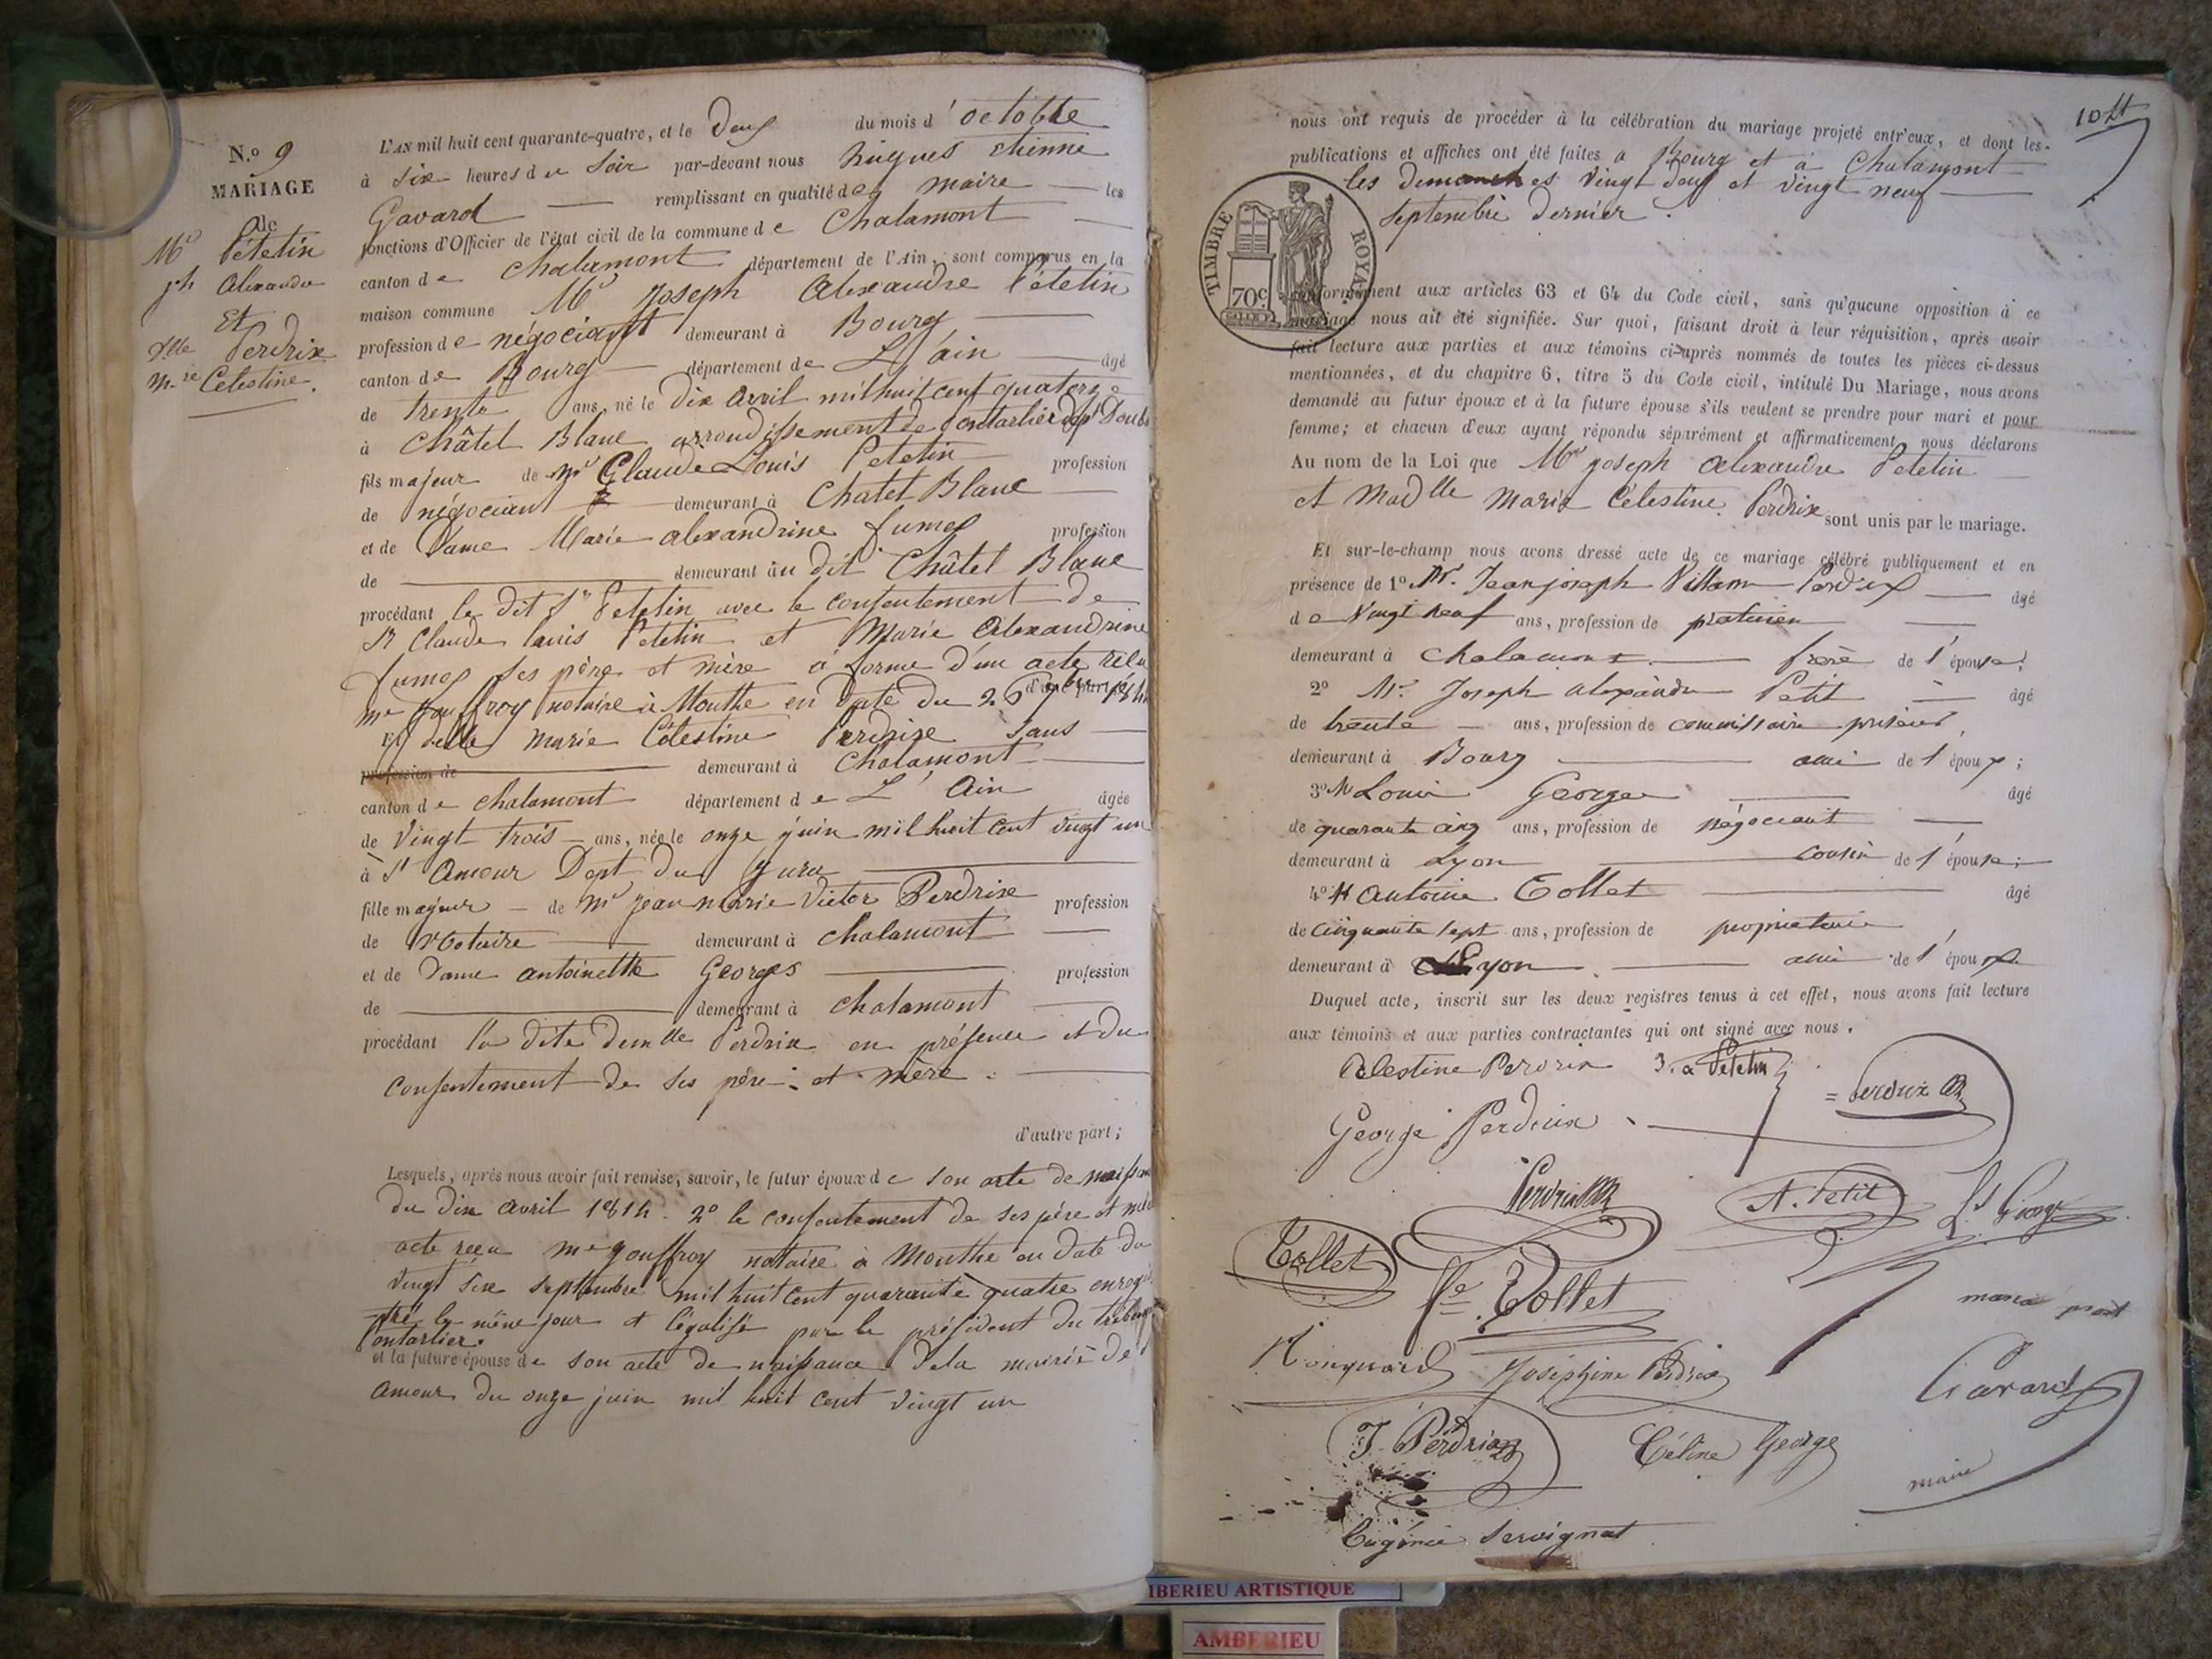 N.o 9
MARIAGE
de
Mr Pételin
jph Alexandre
Et
Delle Perdrix
m.ie Célestine.
L'AN mil huit cent quarante-quatre, et le Deux du mois d'octobre
à six heures du soir par-devant nous hugues etienne
Gavard remplissant en qualité de maire les
fonctions d'Officier de l'état civil de la commune de Chalamont
canton de Chalamont département de l'Ain, sont comparus en la
maison commune Mr Joseph Alexandre Pételin
profession de négociant demeurant à Bourg
canton de Bourg département de L'ain âgé
de trente ans, né le Dix avril mil huit cent quatorze
à Châtel Blanc arrondissement de Pontarlier Dept Doubs
fils majeur de Mr Claude Louis Petetin profession
de négociant demeurant à Chatel Blanc
et de Dame Marie alexandrine fumey profession
de demeurant au dit Châtel Blanc
procédant le dit Sr Petetin avec le consentement de
Sr Claude louis Petetin et Marie Alexandrine
fumey ses père et mère à forme d'un acte reçu
me Jouffroy notaire à Mouthe en date du 26 d'une part;
Et delle Marie Célestine Perdrix sans
profession de demeurant à Chalamont
canton de chalamont département de L'Ain âgée
de Vingt trois ans, née le onze juin mil huit cent vingt un
à St Amour Dept du Jura
fille majeure de mr jean marie Victor Perdrix profession
de Notaire demeurant à chalamont
et de Dame antoinette Georges profession
de demeurant à chalamont
procédant la dite demlle Perdrix en présence et du
consentement de ses père et mère
d'autre part;
Lesquels, après nous avoir fait remise, savoir, le futur époux de son acte de naissance
du dix avril 1814. 2o le consentement de ses père et mère
acte reçu me jouffroy notaire à Mouthe en date du
vingt six septembre mil huit cent quarante quatre enregis
tré le même jour et légalisé par le président du tribunal
Pontarlier.
et la future épouse de son acte de naissance de la mairie de St
Amour du onze juin mil huit cent vingt un
nous ont requis de procéder à la célébration du mariage projeté entr'eux, et dont les
publications et affiches ont été faites à Bourg et à Chalamont
les dimanches vingt deux et vingt neuf
septembre dernier.
TIMBRE ROYAL
70c
conformément aux articles 63 et 64 du Code civil, sans qu'aucune opposition à ce
mariage nous ait été signifiée. Sur quoi, faisant droit à leur réquisition, après avoir
fait lecture aux parties et aux témoins ci-après nommés de toutes les pièces ci-dessus
mentionnées, et du chapitre 6, titre 5 du Code civil, intitulé Du Mariage, nous avons
demandé au futur époux et à la future épouse s'ils veulent se prendre pour mari et pour
femme; et chacun d'eux ayant répondu séparément et affirmativement, nous déclarons
Au nom de la Loi que Mr joseph alexandre Petetin
et Madlle Marie Célestine Perdrix sont unis par le mariage.
Et sur-le-champ nous avons dressé acte de ce mariage célébré publiquement et en
présence de 1o Mr. Jean joseph Perdrix âgé
de Vingt neuf ans, profession de praticien
demeurant à Chalamont frère de l'épouse;
2o Mr. Joseph alexandre Petit âgé
de trente ans, profession de commissaire priseur
demeurant à Bourg ami de l'époux;
3o Mr Louis George âgé
de quarante cinq ans, profession de négociant
demeurant à Lyon cousin de l'épouse;
4o Mr antoine Tollet âgé
de cinquante sept ans, profession de propriétaire
demeurant à Lyon ami de l'époux.
Duquel acte, inscrit sur les deux registres tenus à cet effet, nous avons fait lecture
aux témoins et aux parties contractantes qui ont signé avec nous.
Célestine Perdrix J. a Petetin
George Perdrix Perdrix
Perdrix A. Petit Ls George
Tollet
Tollet
Joséphine Perdrix Gavard
J. Perdrix Céline George
maire
Eugénie Servignat
MBERIEU ARTISTIQUE
AMBERIEU